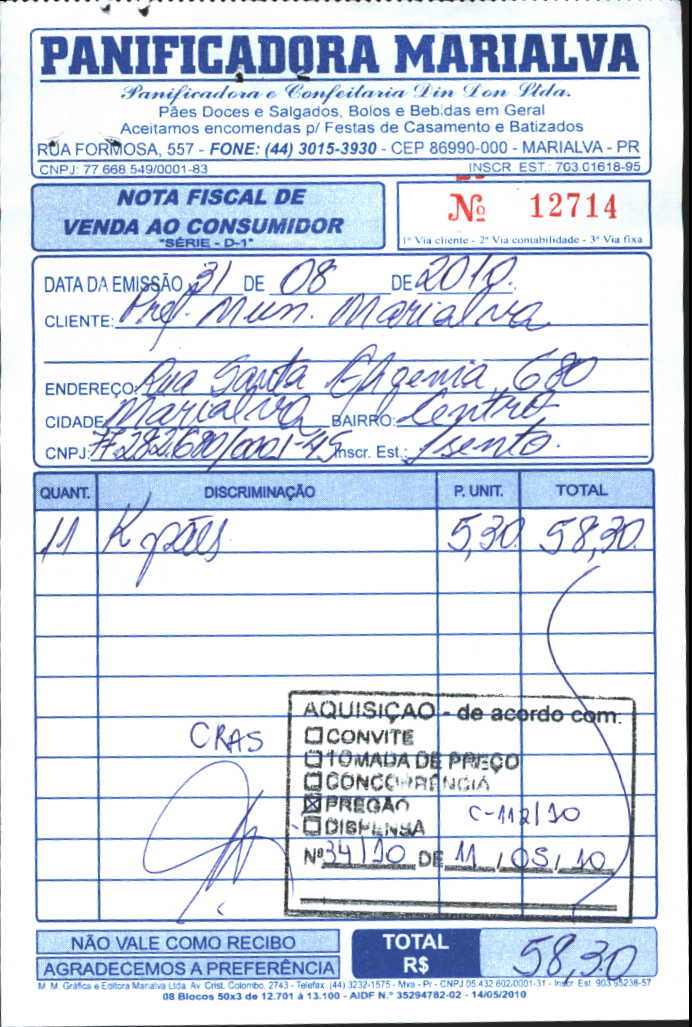 PANIFICADORA MARIALVA
Panificadora e Confeitaria Din Don Ltda.
Pães Doces e Salgados, Bolos e Bebidas em Geral
Aceitamos encomendas p/ Festas de Casamento e Batizados
RUA FORMOSA, 557 - FONE: (44) 3015-3930 - CEP 86990-000 - MARIALVA - PR
CNPJ: 77.668.549/0001-83 INSCR. EST.: 703.01618-95
NOTA FISCAL DE
VENDA AO CONSUMIDOR
"SÉRIE - D-1"
Nº 12714
1ª Via cliente - 2ª Via contabilidade - 3ª Via fixa
DATA DA EMISSÃO 31 DE 08 DE 2010.
CLIENTE: Pref. Mun. Marialva
ENDEREÇO: Rua Santa Efigenia, 680
CIDADE Marialva BAIRRO: Centro
CNPJ: 77.282.680/0001-45 Inscr. Est.: Isento.
QUANT. DISCRIMINAÇÃO P. UNIT. TOTAL
11 K pães 5,30 58,30
AQUISIÇAO - de acordo com:
CONVITE
TOMADA DE PREÇO
CONCORRENCIA
PREGAO C-112/10
DISPENSA
Nº 34/10 DE 11/05/10
CRAS
NÃO VALE COMO RECIBO
AGRADECEMOS A PREFERÊNCIA
TOTAL R$ 58,30
M. M. Gráfica e Editora Marialva Ltda. Av. Crist. Colombo, 2743 - Telefax: (44) 3232-1575 - Mva - Pr - CNPJ 05.432.602/0001-31 - Inscr. Est. 903.95238-57
08 Blocos 50x3 de 12.701 à 13.100 - AIDF N.º 35294782-02 - 14/05/2010